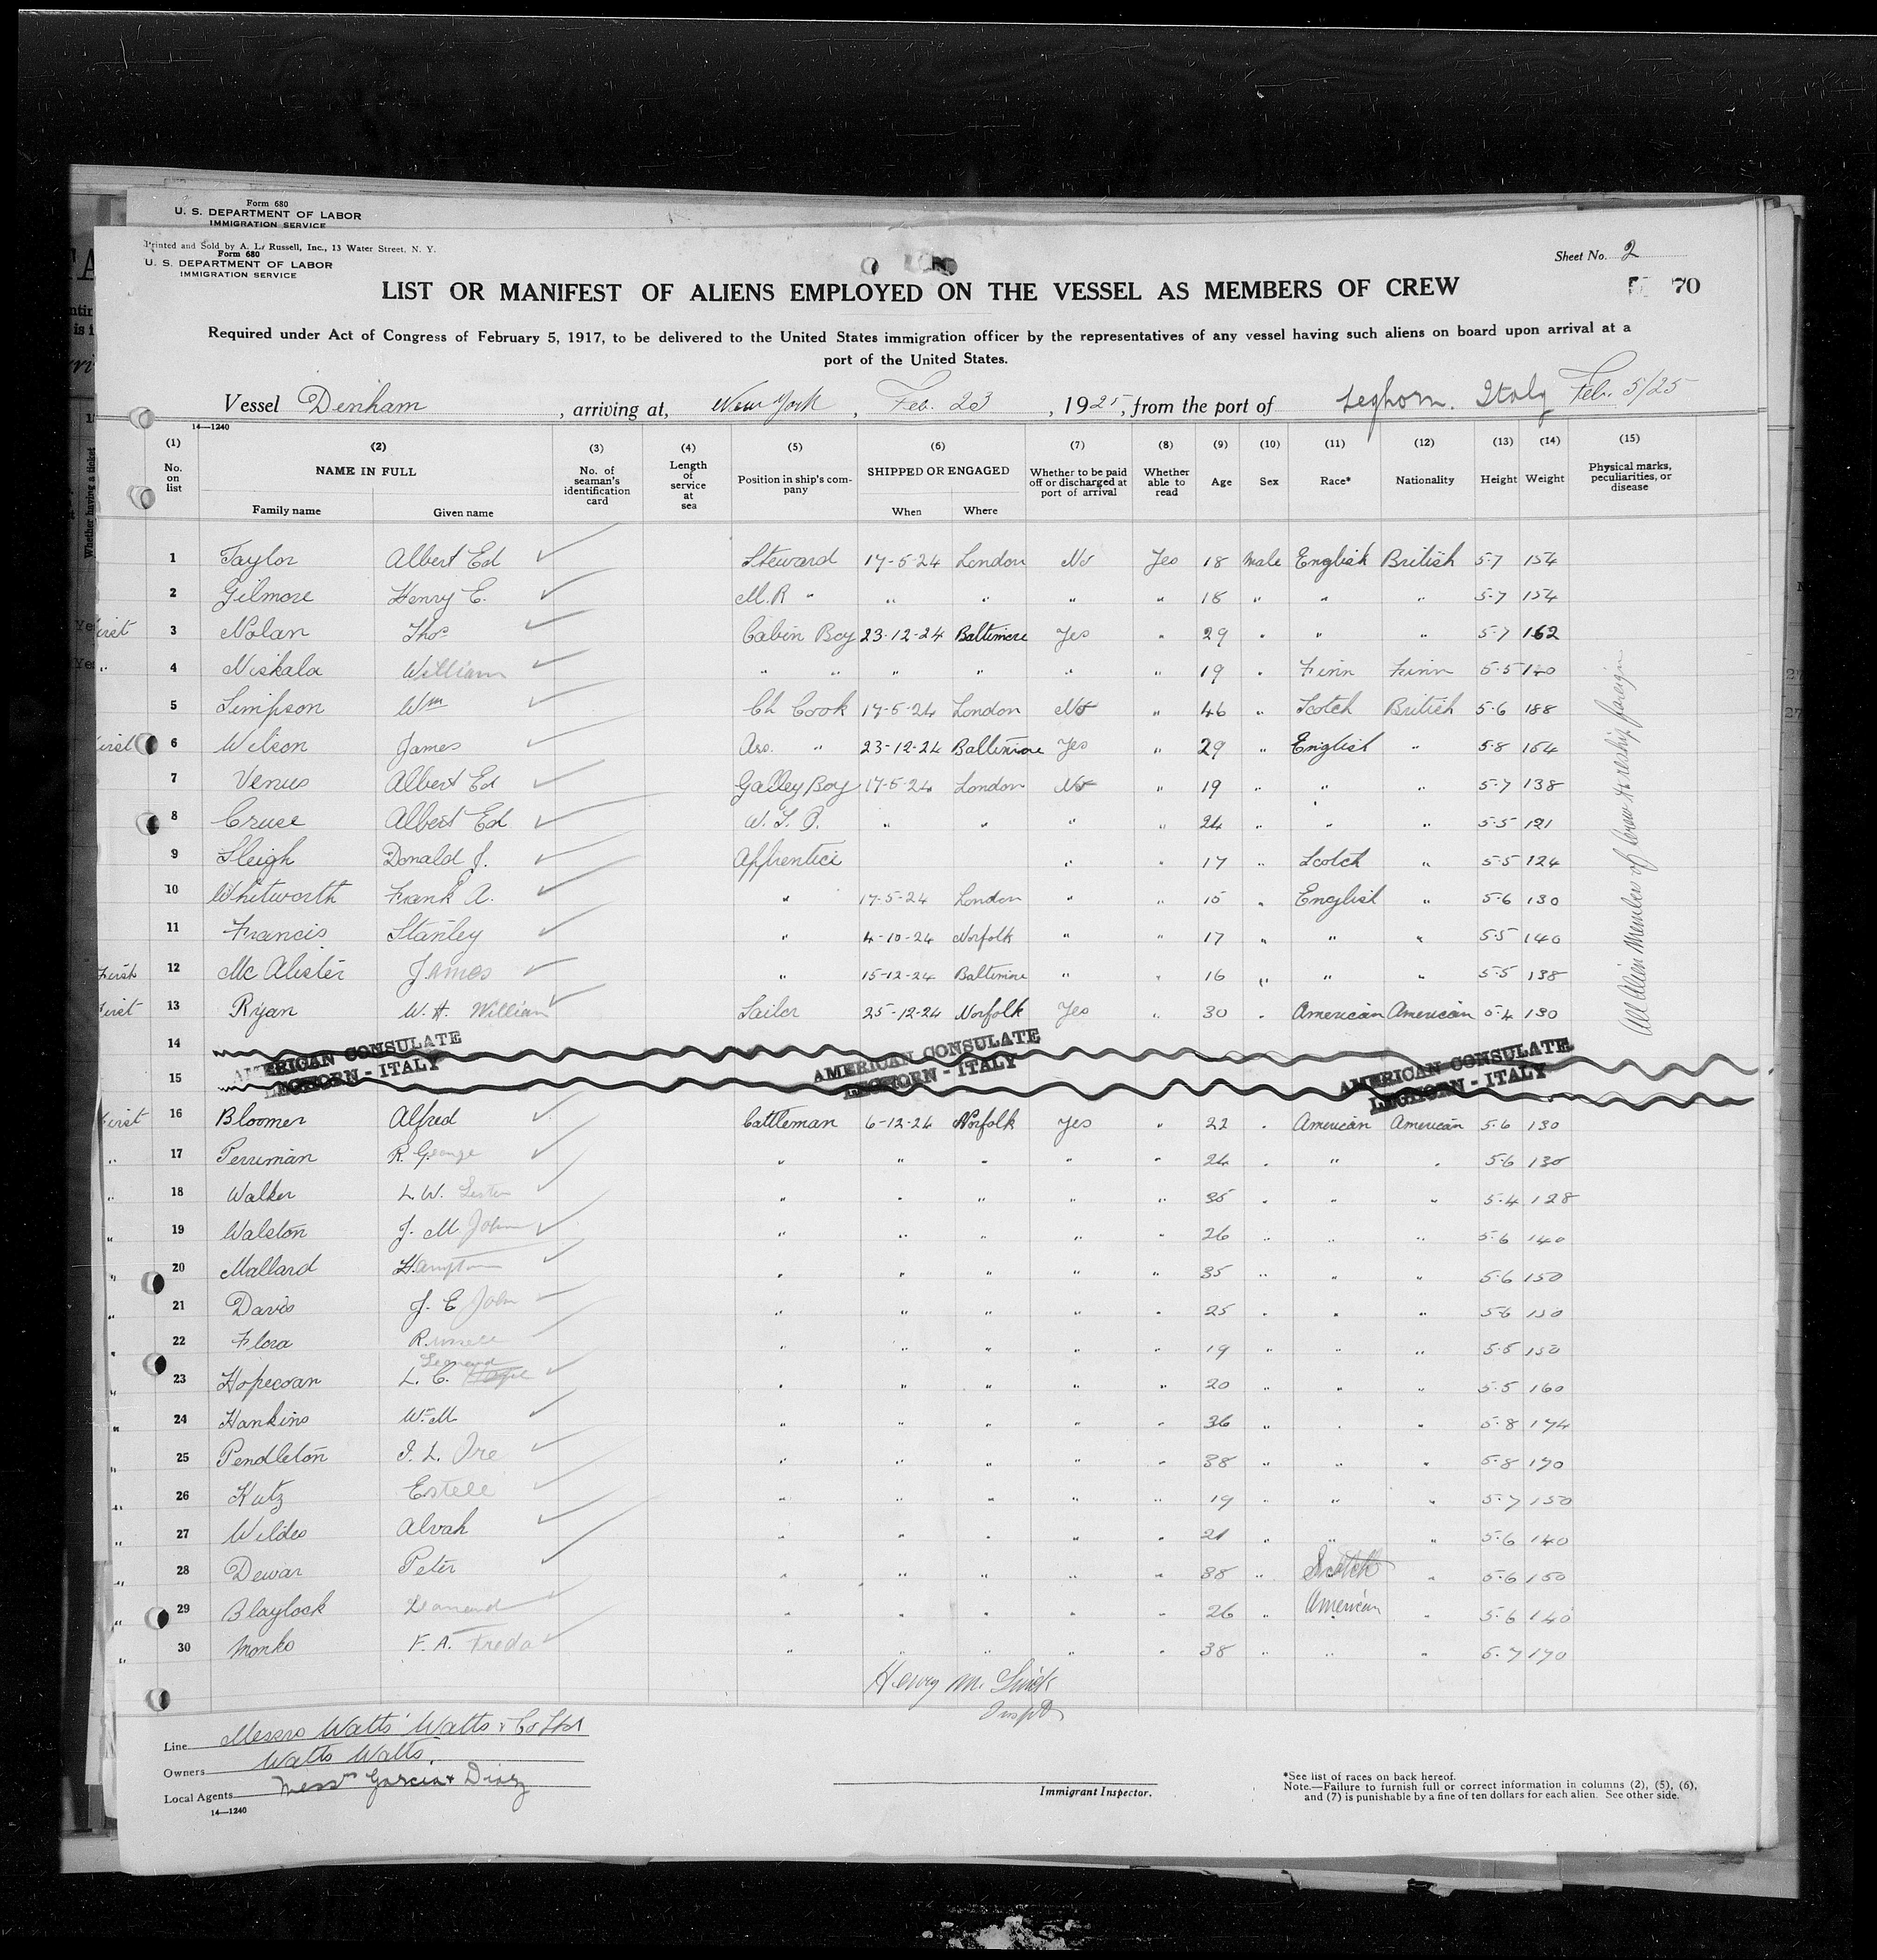 Form 680
U. S. DEPARTMENT OF LABOR
IMMIGRATION SERVICE
Printed and Sold by A. L. Russell, Inc., 13 Water Street, N. Y.
Form 680
U. S. DEPARTMENT OF LABOR
IMMIGRATION SERVICE
Sheet No. 2
70
LIST OR MANIFEST OF ALIENS EMPLOYED ON THE VESSEL AS MEMBERS OF CREW
Required under Act of Congress of February 5, 1917, to be delivered to the United States immigration officer by the representatives of any vessel having such aliens on board upon arrival at a
port of the United States.
Vessel Denham, arriving at, New York, Feb. 23, 1925, from the port of Leghorn. Italy Feb. 5/25
14—1240
(1) (2) (3) (4) (5) (6) (7) (8) (9) (10) (11) (12) (13) (14) (15)
No. on list NAME IN FULL Family name Given name No. of seaman's identification card Length of service at sea Position in ship's company SHIPPED OR ENGAGED When Where Whether to be paid off or discharged at port of arrival Whether able to read Age Sex Race* Nationality Height Weight Physical marks, peculiarities, or disease
1 Taylor Albert Ed Steward 17-5-24 London No Yes 18 male English British 5-7 154
2 Gilmore Henry E. M.R " " " " " 18 " " " 5-7 154
3 Nolan Thos Cabin Boy 23-12-24 Baltimore Yes " 29 " " " 5-7 162
" 4 Niskala William " " " " " " 19 " Finn Finn 5-5 140
5 Simpson Wm Ch Cook 17-5-24 London No " 46 " Scotch British 5-6 188
6 Wilson James Ass. " 23-12-24 Baltimore Yes " 29 " English " 5-8 164
7 Venus Albert Ed Galley Boy 17-5-24 London No " 19 " " " 5-7 138
8 Cruse Albert Ed W. T. B. " " " " 24 " " " 5-5 121
9 Sleigh Donald J. Apprentice " " 17 " Scotch " 5-5 124
10 Whitworth Frank A. " 17-5-24 London " " 15 " English " 5-6 130
11 Francis Stanley " 4-10-24 Norfolk " " 17 " " " 5-5 140
First 12 Mc Alister James " 15-12-24 Baltimore " " 16 " " " 5-5 138
First 13 Ryan W. H. William Sailor 25-12-24 Norfolk Yes " 30 " American American 5-4 130
All Alien Member of crew
14
AMERICAN CONSULATE AMERICAN CONSULATE AMERICAN CONSULATE
LEGHORN - ITALY LEGHORN - ITALY LEGHORN - ITALY
15
First 16 Bloomer Alfred Cattleman 6-12-24 Norfolk Yes " 22 " American American 5-6 130
" 17 Perriman R. George " " " " " 24 " " " 5-6 130
" 18 Walker L. W. Lester " " " " " 35 " " " 5-4 128
" 19 Walston J. M. John " " " " " 26 " " " 5-6 140
" 20 Mallard Hampton " " " " " 35 " " " 5-6 150
" 21 Davis J. E John " " " " " 25 " " " 5-6 130
" 22 Flora Russell " " " " " 19 " " " 5-5 150
" 23 Hopecoan L. C. Leonard " " " " " 20 " " " 5-5 160
" 24 Hankins Wm M. " " " " " 36 " " " 5-8 174
" 25 Pendleton I. L. Ire " " " " " 38 " " " 5-8 170
" 26 Kutz Estell " " " " " 19 " " " 5-7 150
" 27 Wildes Alvah " " " " " 21 " " " 5-6 140
" 28 Dewar Peter " " " " " 38 " Scotch " 5-6 150
" 29 Blaylock Leonard " " " " " 26 " American " 5-6 140
" 30 Monks F. A. Freda " " " " " 38 " " " 5-7 170
Henry M.
Inspt
Line Messrs Watts Watts & Co Ltd
Owners Watts Watts
Local Agents Messrs Garcia & Diaz
14—1240
Immigrant Inspector.
*See list of races on back hereof.
Note.—Failure to furnish full or correct information in columns (2), (5), (6),
and (7) is punishable by a fine of ten dollars for each alien. See other side.